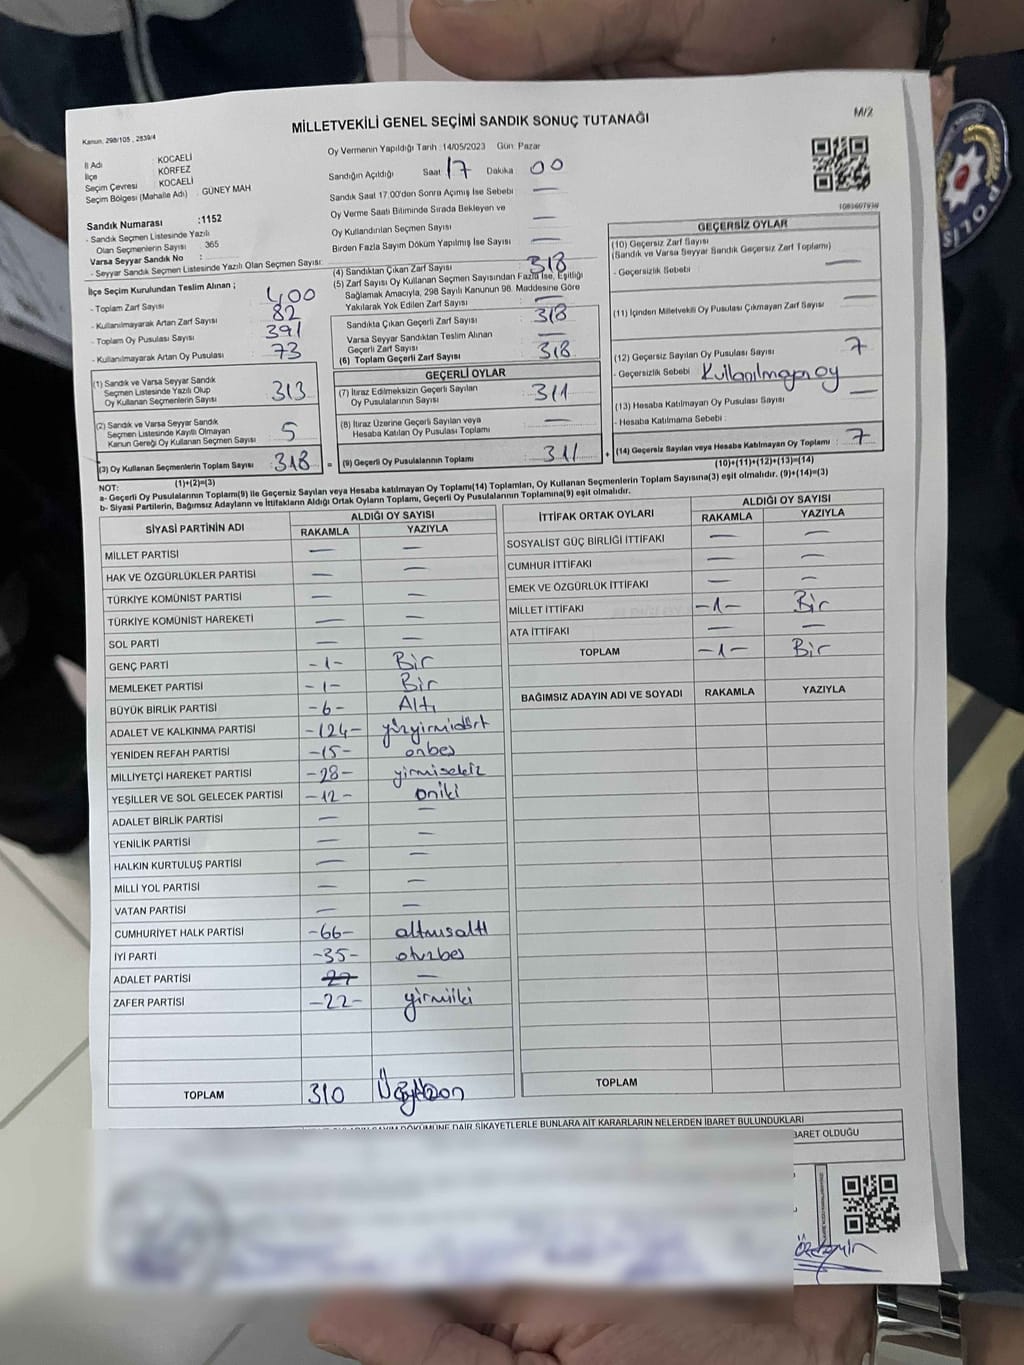 MİLLETVEKİLİ GENEL SEÇİMİ SANDIK SONUÇ TUTANAĞI
M/2
Kanun, 298/105 , 2839/4
İl Adı KOCAELİ
İlçe KÖRFEZ
Seçim Çevresi KOCAELİ
Seçim Bölgesi (Mahalle Adı) GÜNEY MAH
Sandık Numarası :1152
- Sandık Seçmen Listesinde Yazılı
Olan Seçmenlerin Sayısı : 365
Varsa Seyyar Sandık No :
- Seyyar Sandık Seçmen Listesinde Yazılı Olan Seçmen Sayısı:
Oy Vermenin Yapıldığı Tarih :14/05/2023 Gün: Pazar
Sandığın Açıldığı Saat 17 Dakika 00
Sandık Saat 17.00'den Sonra Açımış İse Sebebi —
Oy Verme Saati Bitiminde Sırada Bekleyen ve
Oy Kullandırılan Seçmen Sayısı —
Birden Fazla Sayım Döküm Yapılmış İse Sayısı —
İlçe Seçim Kurulundan Teslim Alınan ;
- Toplam Zarf Sayısı 400
- Kullanılmayarak Artan Zarf Sayısı 82
- Toplam Oy Pusulası Sayısı 391
- Kullanılmayarak Artan Oy Pusulası 73
(1) Sandık ve Varsa Seyyar Sandık
Seçmen Listesinde Yazılı Olup
Oy Kullanan Seçmenlerin Sayısı 313
(2) Sandık ve Varsa Seyyar Sandık
Seçmen Listesinde Kayıtlı Olmayan
Kanun Gereği Oy Kullanan Seçmen Sayısı 5
(3) Oy Kullanan Seçmenlerin Toplam Sayısı :318
(1)+(2)=(3)
(4) Sandıktan Çıkan Zarf Sayısı 318
(5) Zarf Sayısı Oy Kullanan Seçmen Sayısından Fazla İse, Eşitliği
Sağlamak Amacıyla, 298 Sayılı Kanunun 98. Maddesine Göre
Yakılarak Yok Edilen Zarf Sayısı —
Sandıkta Çıkan Geçerli Zarf Sayısı : 318
Varsa Seyyar Sandıktan Teslim Alınan
Geçerli Zarf Sayısı —
(6) Toplam Geçerli Zarf Sayısı : 318
GEÇERLİ OYLAR
(7) İtiraz Edilmeksizin Geçerli Sayılan
Oy Pusulalarının Sayısı : 311
(8) İtiraz Üzerine Geçerli Sayılan veya
Hesaba Katılan Oy Pusulası Toplamı : —
= (9) Geçerli Oy Pusulalarının Toplamı : 311 +
1080607939
GEÇERSİZ OYLAR
(10) Geçersiz Zarf Sayısı
(Sandık ve Varsa Seyyar Sandık Geçersiz Zarf Toplamı)
- Geçersizlik Sebebi : —
(11) İçinden Milletvekili Oy Pusulası Çıkmayan Zarf Sayısı —
(12) Geçersiz Sayılan Oy Pusulası Sayısı : 7
- Geçersizlik Sebebi : Kullanılmayan oy
(13) Hesaba Katılmayan Oy Pusulası Sayısı —
- Hesaba Katılmama Sebebi :
(14) Geçersiz Sayılan veya Hesaba Katılmayan Oy Toplamı : 7
(10)+(11)+(12)+(13)=(14)
NOT:
a- Geçerli Oy Pusulalarının Toplamı(9) ile Geçersiz Sayılan veya Hesaba katılmayan Oy Toplamı(14) Toplamları, Oy Kullanan Seçmenlerin Toplam Sayısına(3) eşit olmalıdır. (9)+(14)=(3)
b- Siyasi Partilerin, Bağımsız Adayların ve İttifakların Aldığı Ortak Oyların Toplamı, Geçerli Oy Pusulalarının Toplamına(9) eşit olmalıdır.
SİYASİ PARTİNİN ADI ALDIĞI OY SAYISI
RAKAMLA YAZIYLA
MİLLET PARTİSİ — —
HAK VE ÖZGÜRLÜKLER PARTİSİ — —
TÜRKİYE KOMÜNİST PARTİSİ — —
TÜRKİYE KOMÜNİST HAREKETİ — —
SOL PARTİ — —
GENÇ PARTİ -1- Bir
MEMLEKET PARTİSİ -1- Bir
BÜYÜK BİRLİK PARTİSİ -6- Altı
ADALET VE KALKINMA PARTİSİ -124- yüzyirmidört
YENİDEN REFAH PARTİSİ -15- onbeş
MİLLİYETÇİ HAREKET PARTİSİ -28- yirmisekiz
YEŞİLLER VE SOL GELECEK PARTİSİ -12- oniki
ADALET BİRLİK PARTİSİ — —
YENİLİK PARTİSİ — —
HALKIN KURTULUŞ PARTİSİ — —
MİLLİ YOL PARTİSİ — —
VATAN PARTİSİ — —
CUMHURİYET HALK PARTİSİ -66- altmışaltı
İYİ PARTİ -35- otuzbeş
ADALET PARTİSİ —
ZAFER PARTİSİ -22- yirmiiki
TOPLAM 310
İTTİFAK ORTAK OYLARI ALDIĞI OY SAYISI
RAKAMLA YAZIYLA
SOSYALİST GÜÇ BİRLİĞİ İTTİFAKI — —
CUMHUR İTTİFAKI — —
EMEK VE ÖZGÜRLÜK İTTİFAKI — —
MİLLET İTTİFAKI -1- Bir
ATA İTTİFAKI — —
TOPLAM -1- Bir
BAĞIMSIZ ADAYIN ADI VE SOYADI RAKAMLA YAZIYLA
TOPLAM
DÖKÜMÜNE DAİR ŞİKAYETLERLE BUNLARA AİT KARARLARIN NELERDEN İBARET BULUNDUKLARI
BARET OLDUĞU
POLİS